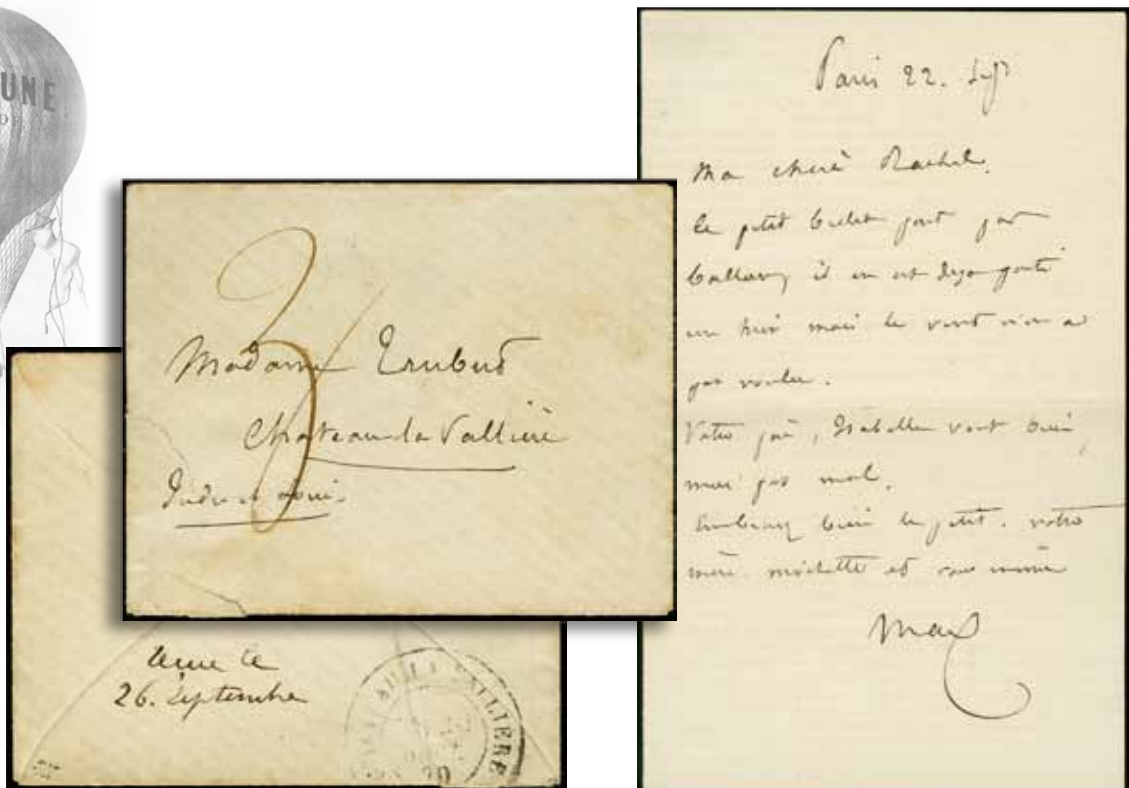 UNE
3
Madame
Chateau la Vallière
Indre et Loire.
26. Septembre
LA VALLIERE
Paris 22. Sept
Ma chère Rachel,
Ce petit billet part par
ballon, il en est deja parti
un hier mais le vent n'en a
pas voulu.
Votre père, Isabelle vont bien,
moi pas mal.
Embrassez bien le petit. votre
mère. michette et vous même
Max